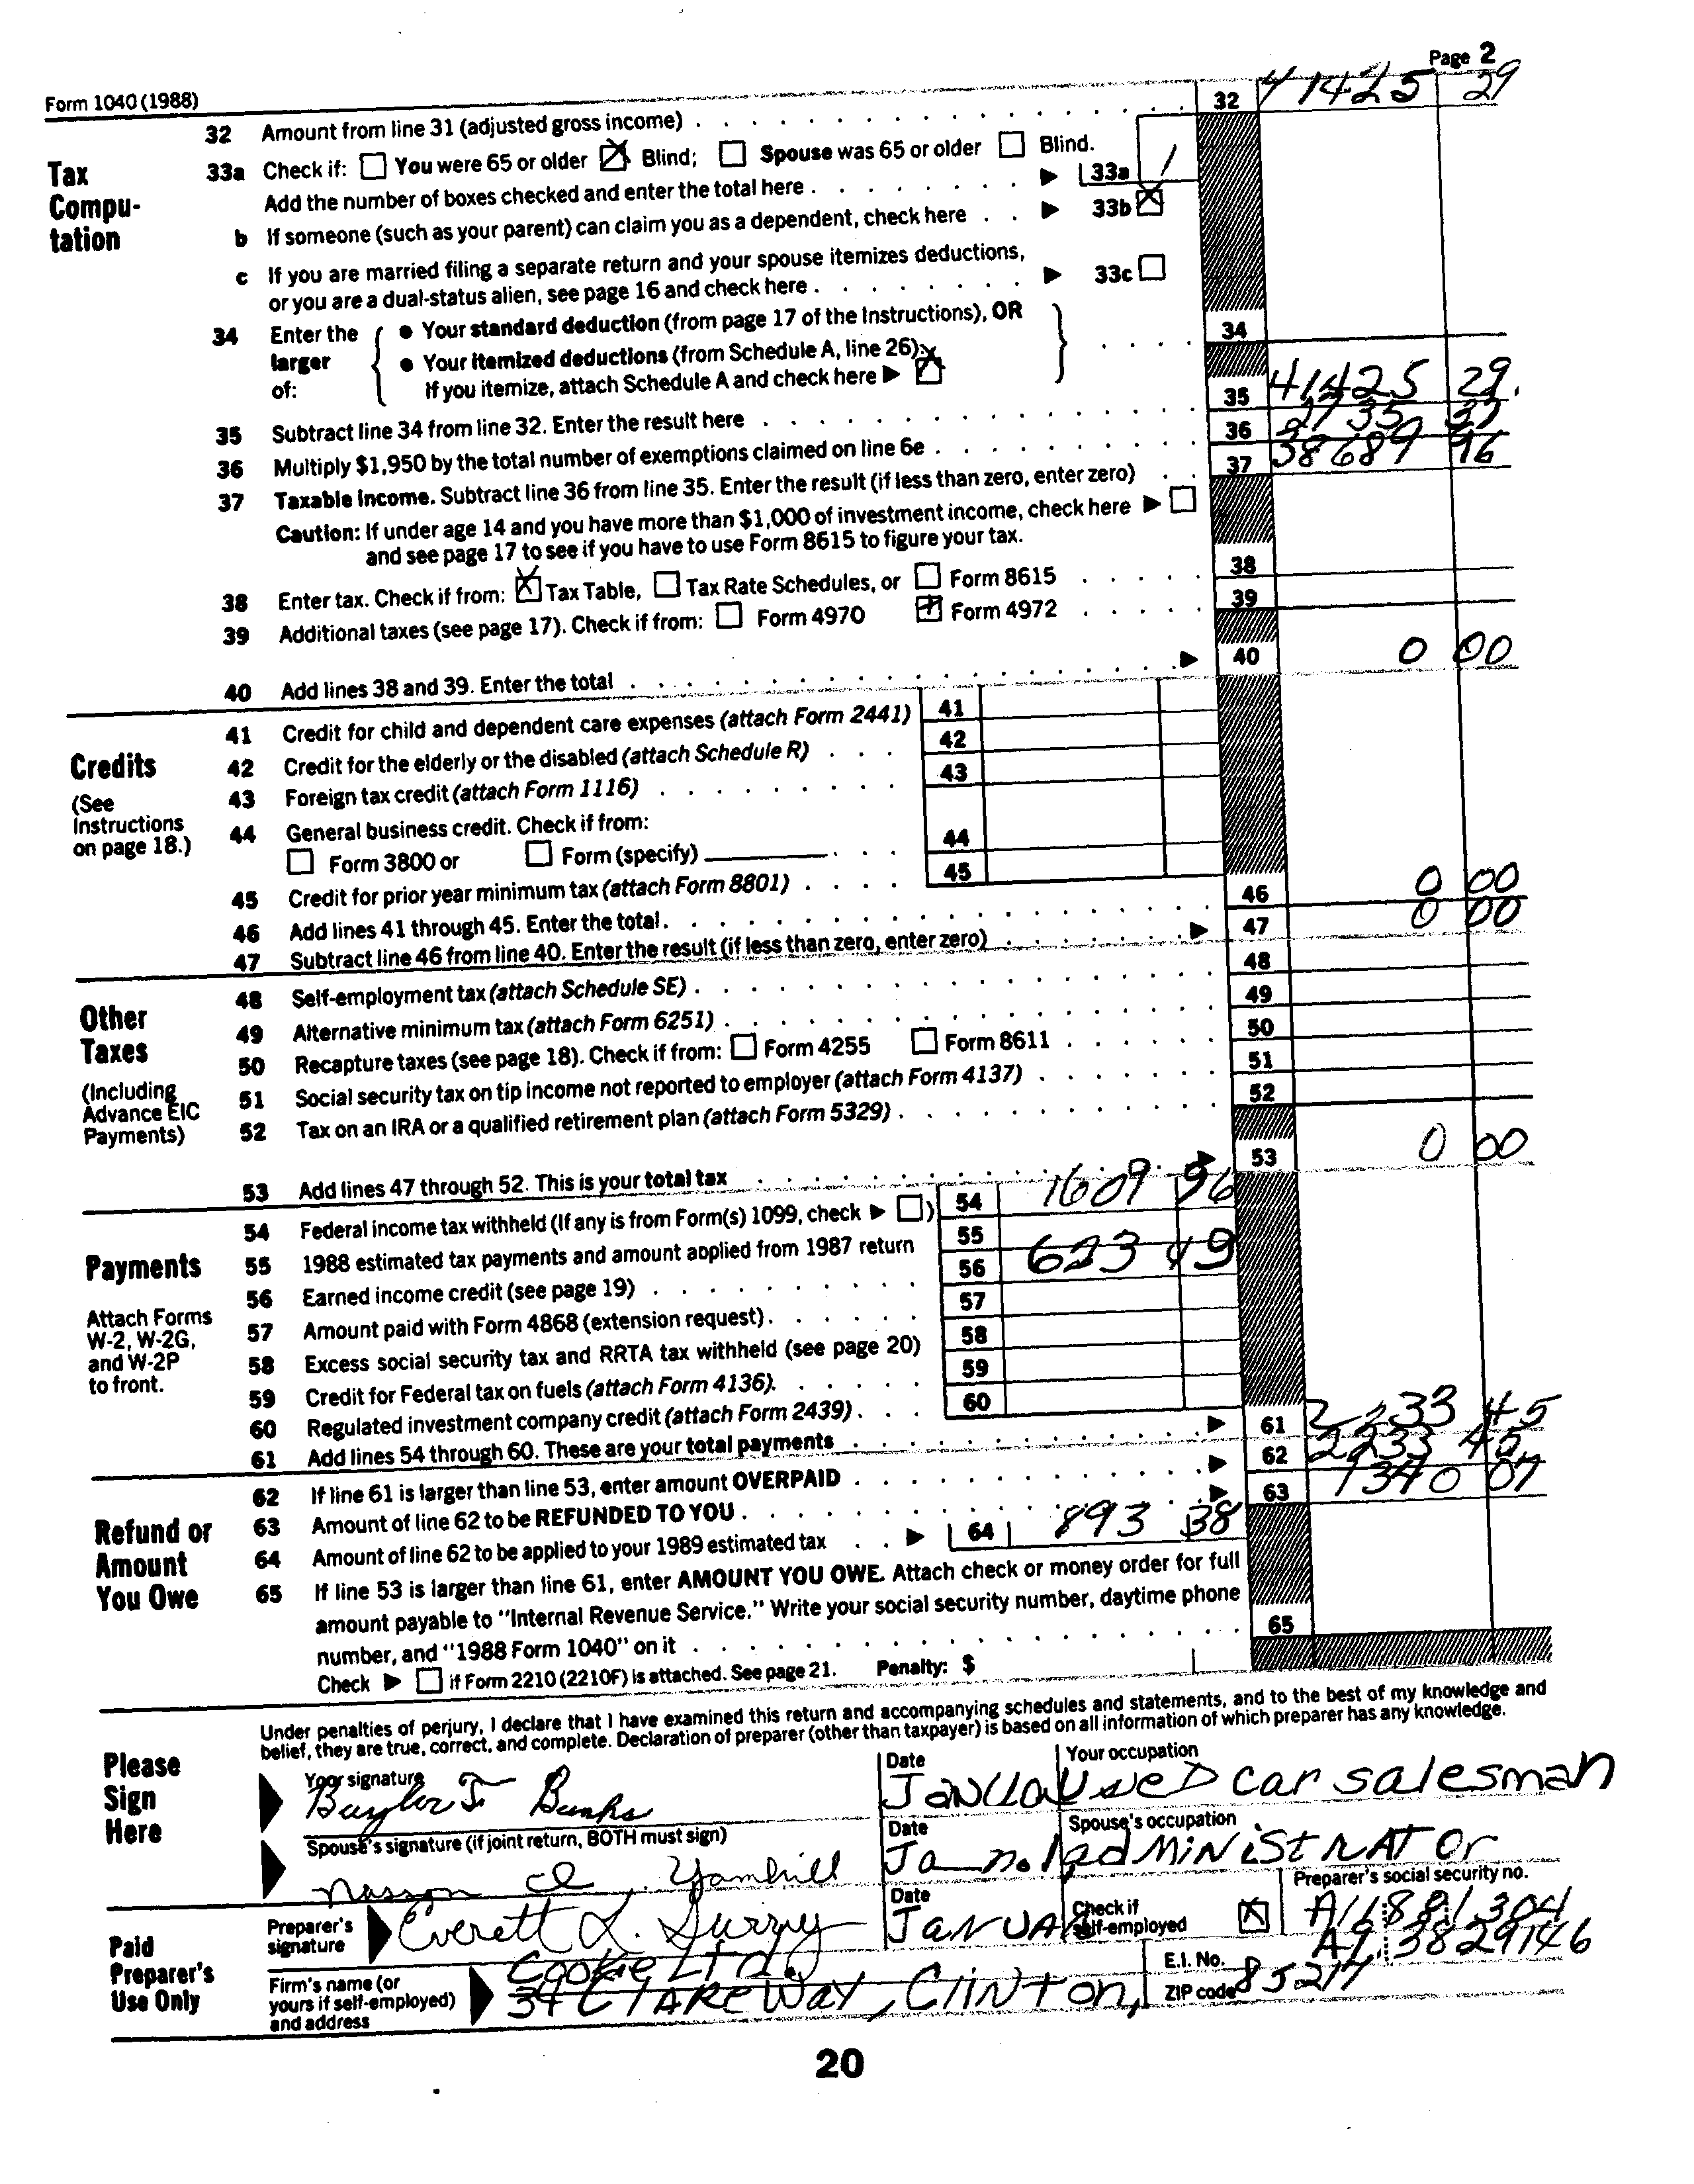 Page 2
Form 1040 (1988)
32 Amount from line 31 (adjusted gross income) 32 41425 29
Tax Compu- tation
33a Check if: You were 65 or older Blind; Spouse was 65 or older Blind.
Add the number of boxes checked and enter the total here 33a 1
b If someone (such as your parent) can claim you as a dependent, check here 33b
c If you are married filing a separate return and your spouse itemizes deductions,
or you are a dual-status alien, see page 16 and check here 33c
34 Enter the larger of: { • Your standard deduction (from page 17 of the Instructions), OR } 34
• Your itemized deductions (from Schedule A, line 26).
If you itemize, attach Schedule A and check here
35 Subtract line 34 from line 32. Enter the result here 35 41425 29.
36 Multiply $1,950 by the total number of exemptions claimed on line 6e 36 2735 33
37 Taxable income. Subtract line 36 from line 35. Enter the result (if less than zero, enter zero) 37 38689 96
Caution: If under age 14 and you have more than $1,000 of investment income, check here
and see page 17 to see if you have to use Form 8615 to figure your tax.
38 Enter tax. Check if from: Tax Table, Tax Rate Schedules, or Form 8615 38
39 Additional taxes (see page 17). Check if from: Form 4970 Form 4972 39
40 Add lines 38 and 39. Enter the total 40 0 00
Credits
(See Instructions on page 18.)
41 Credit for child and dependent care expenses (attach Form 2441) 41
42 Credit for the elderly or the disabled (attach Schedule R) 42
43 Foreign tax credit (attach Form 1116) 43
44 General business credit. Check if from:
Form 3800 or Form (specify) 44
45 Credit for prior year minimum tax (attach Form 8801) 45
46 Add lines 41 through 45. Enter the total 46 0 00
47 Subtract line 46 from line 40. Enter the result (if less than zero, enter zero) 47 0 00
Other Taxes
(Including Advance EIC Payments)
48 Self-employment tax (attach Schedule SE) 48
49 Alternative minimum tax (attach Form 6251) 49
50 Recapture taxes (see page 18). Check if from: Form 4255 Form 8611 50
51 Social security tax on tip income not reported to employer (attach Form 4137) 51
52 Tax on an IRA or a qualified retirement plan (attach Form 5329) 52
53 Add lines 47 through 52. This is your total tax 53 0 00
Payments
Attach Forms W-2, W-2G, and W-2P to front.
54 Federal income tax withheld (If any is from Form(s) 1099, check ) 54 1609 96
55 1988 estimated tax payments and amount applied from 1987 return 55
56 Earned income credit (see page 19) 56 623 49
57 Amount paid with Form 4868 (extension request) 57
58 Excess social security tax and RRTA tax withheld (see page 20) 58
59 Credit for Federal tax on fuels (attach Form 4136) 59
60 Regulated investment company credit (attach Form 2439) 60
61 Add lines 54 through 60. These are your total payments 61 2233 45
Refund or Amount You Owe
62 If line 61 is larger than line 53, enter amount OVERPAID 62 2233 45
63 Amount of line 62 to be REFUNDED TO YOU 63 1340 07
64 Amount of line 62 to be applied to your 1989 estimated tax 64 893 38
65 If line 53 is larger than line 61, enter AMOUNT YOU OWE. Attach check or money order for full
amount payable to "Internal Revenue Service." Write your social security number, daytime phone
number, and "1988 Form 1040" on it 65
Check if Form 2210 (2210F) is attached. See page 21. Penalty: $
Please Sign Here
Under penalties of perjury, I declare that I have examined this return and accompanying schedules and statements, and to the best of my knowledge and
belief, they are true, correct, and complete. Declaration of preparer (other than taxpayer) is based on all information of which preparer has any knowledge.
Your signature Date Your occupation
Baylor T Banks used car salesman
Spouse's signature (if joint return, BOTH must sign) Date Spouse's occupation
Yamhill adMiNiStRATOr
Paid Preparer's Use Only
Preparer's signature Date Check if self-employed Preparer's social security no.
Everett L. Surry JaNUA
Firm's name (or yours if self-employed) and address E.I. No.
Cookie Ltd.
34 ClAReWay, Clinton, ZIP code 85214
20